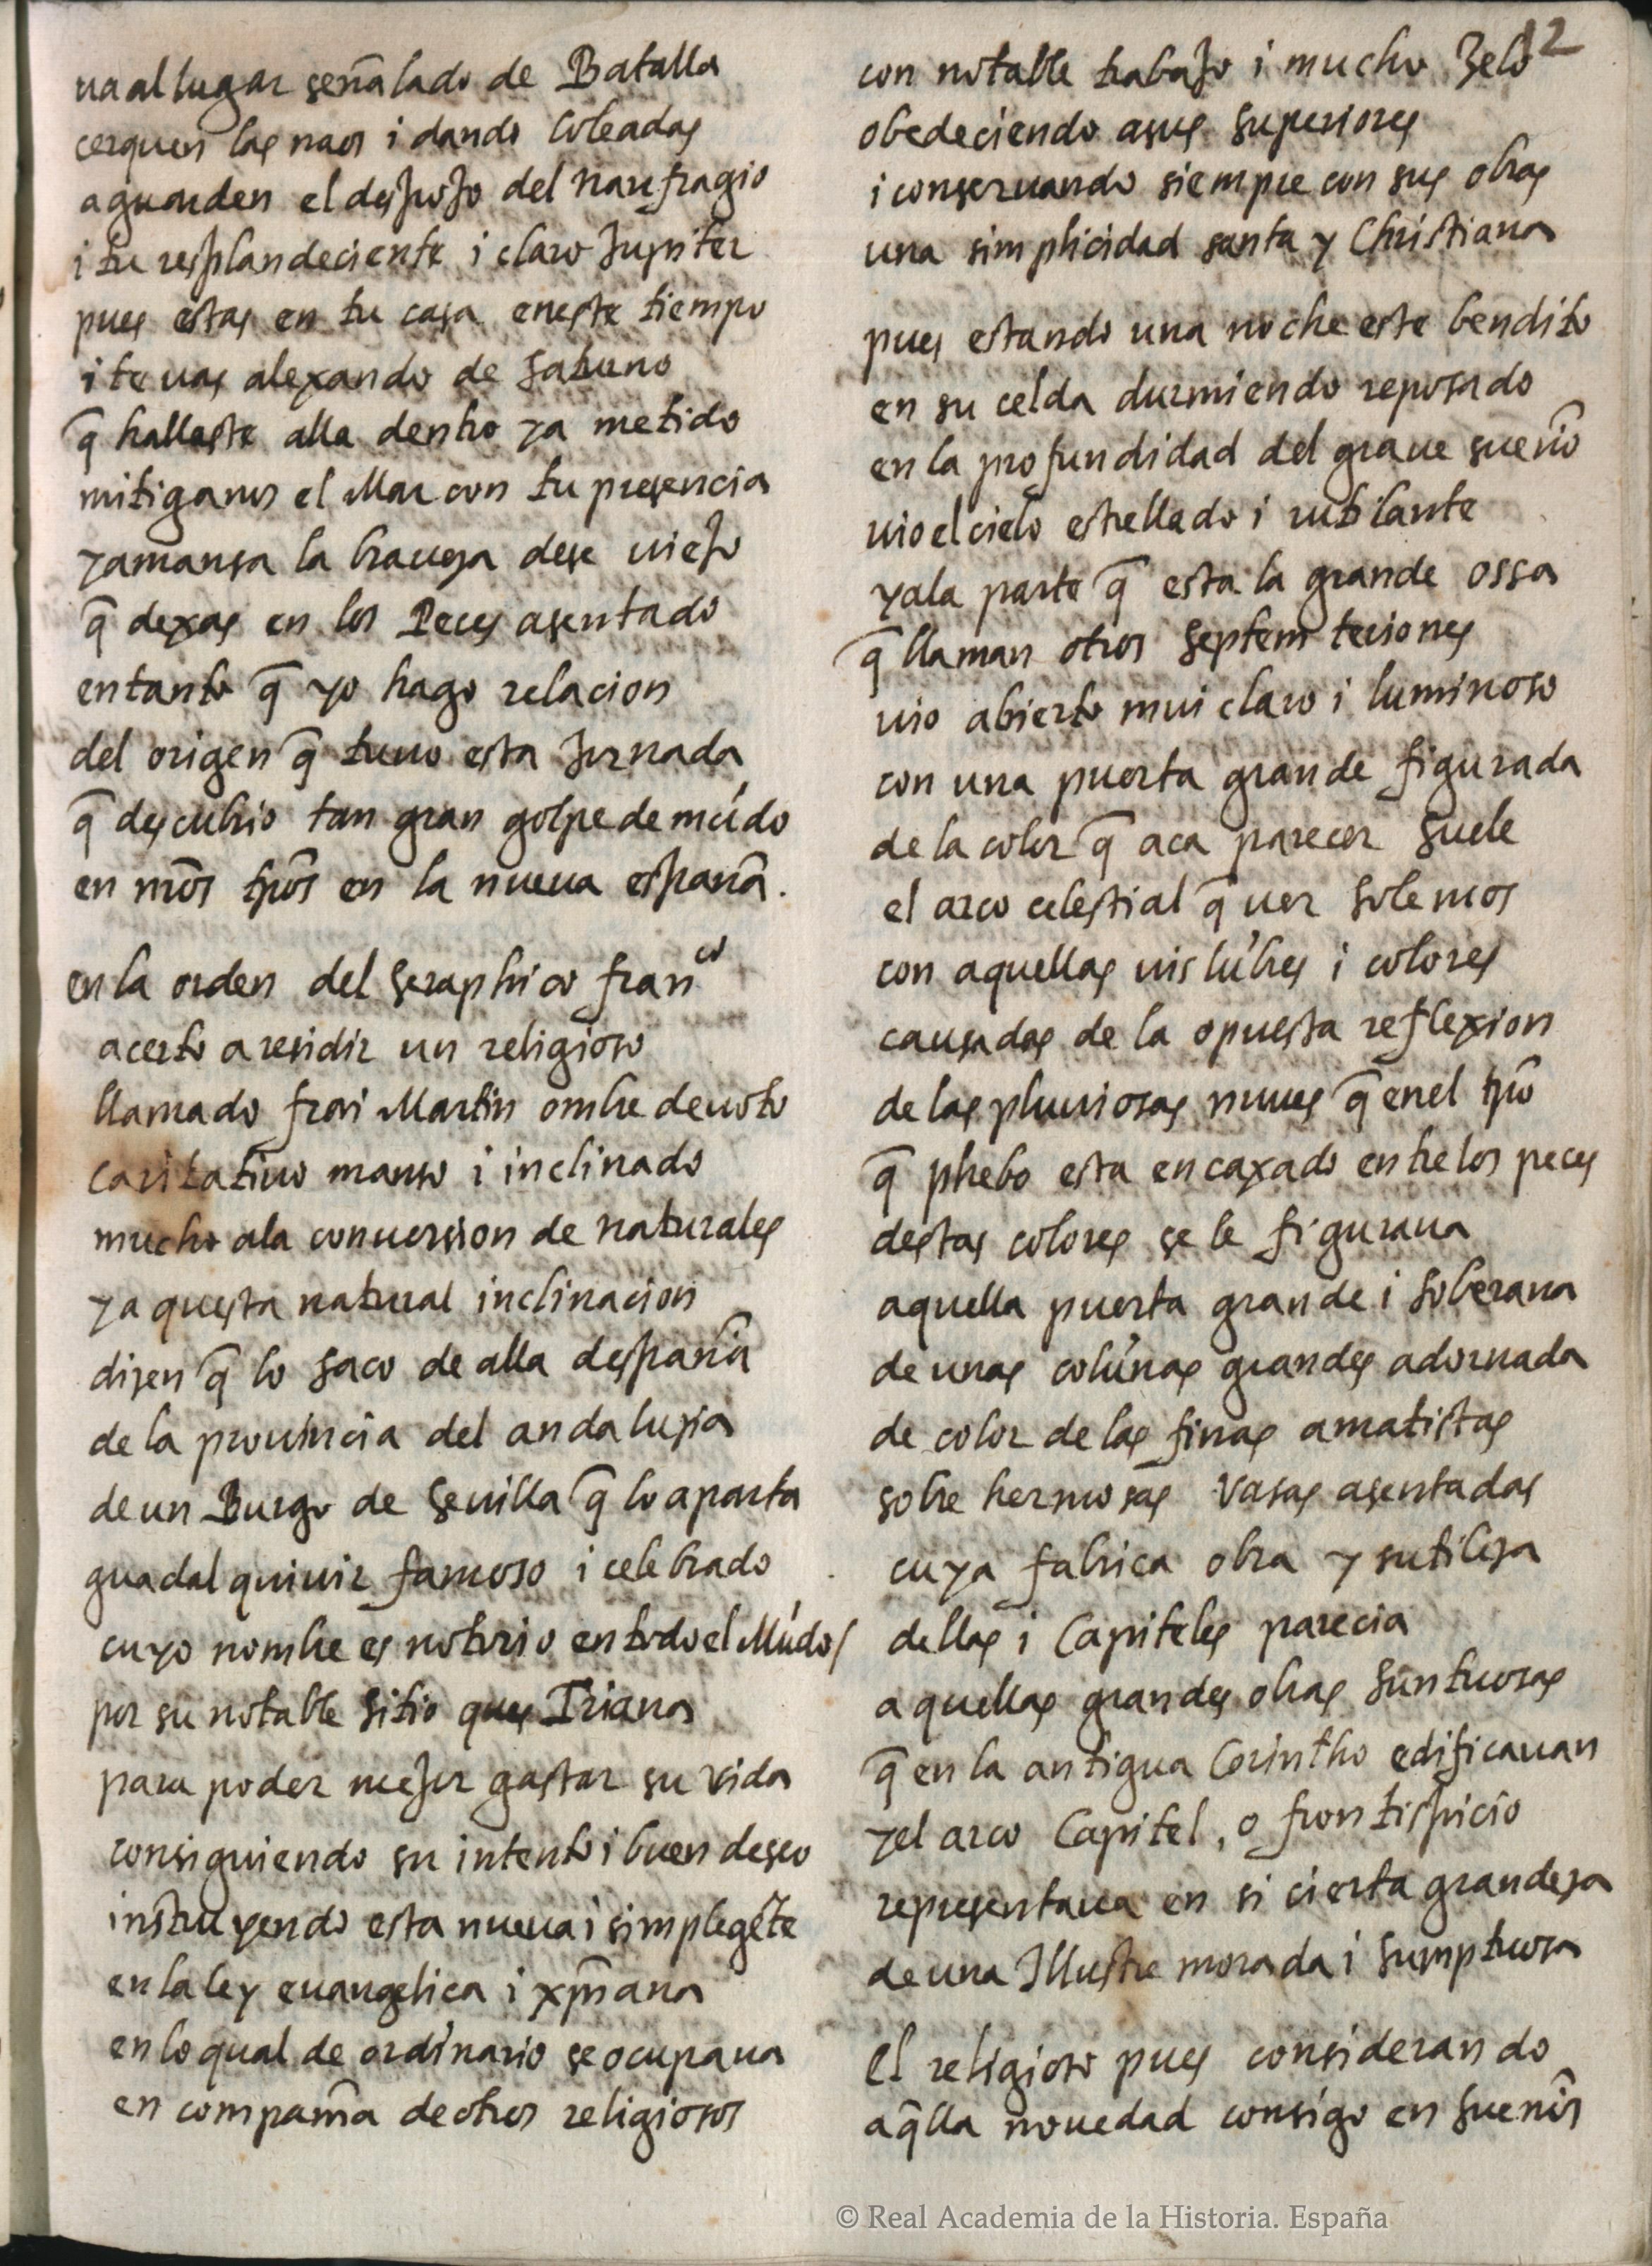 ua al lugar señalado de Batalla
cerquen las naos i dando Coleadas
aguarden el despojo del naufragio
i tu resplandeciente i claro Jupiter
pues estas en tu casa eneste tiempo
i te uas alexando de Saturno
q̃ hallaste alla dentro ya metido
mitiganos el Mar con tu presencia
yamansa la braueza dese uiejo
q̃ dexas en los Peces asentado
entanto q̃ yo hago relacion
del origen q̃ tuuo esta Jornada
q̃ descubrio tan gran golpe de mũdo
en nr̃os tp̃os en la nueua españa.
en la orden del Seraphico franco
acerto a residir un religioso
llamado frai Martin ombre deuoto
caritatiuo manso i inclinado
mucho ala conuersion de naturales
ya questa natural inclinacion
dizen q̃ lo saco de alla despaña
de la prouincia del andaluzia
de un Burgo de Seuilla q̃ lo aparta
guadalquiuir famoso i celebrado
cuyo nombre es notorio en todo el Mũdo/
por su notable sitio ques Triana
para poder mejor gastar su vida
consiguiendo su intento i buen deseo
instruyendo esta nueua i simple gẽte
en la ley euangelica i xp̃iana
en lo qual de ordinario se ocupaua
en compañia de otros religiosos
12
con notable trabajo i mucho Zelo
obedeciendo asus Superiores
i conseruando siempre con sus obras
una simplicidad santa y Christiana
pues estando una noche este bendito
en su celda durmiendo reposado
en la profundidad del graue sueño
uio el cielo estrellado i rutilante
yala parte q̃ esta la grande ossa
q̃ llaman otros Septem teriones
uio abierto mui claro i luminoso
con una puerta grande figurada
de la color q̃ aca parecer suele
el arco celestial q̃ uer solemos
con aquellas uislũbres i colores
causadas de la opuesta reflexion
de las pluuiosas nuues q̃ enel tp̃o
q̃ phebo esta encaxado entre los peces
destas colores se le figuraua
aquella puerta grande i soberana
de unas colũnas grandes adornada
de color de las finas amatistas
sobre hermosas Vasas asentadas
cuya fabrica obra y sutileza
dellas i Capiteles parecia
aquellas grandes obras suntuosas
q̃ en la antigua Corintho edificauan
yel arco Capitel, o frontispicio
representaua en si cierta grandeza
de una Illustre morada i sumptuosa
El religioso pues considerando
aq̃lla nouedad consigo en sueños
© Real Academia de la Historia. España